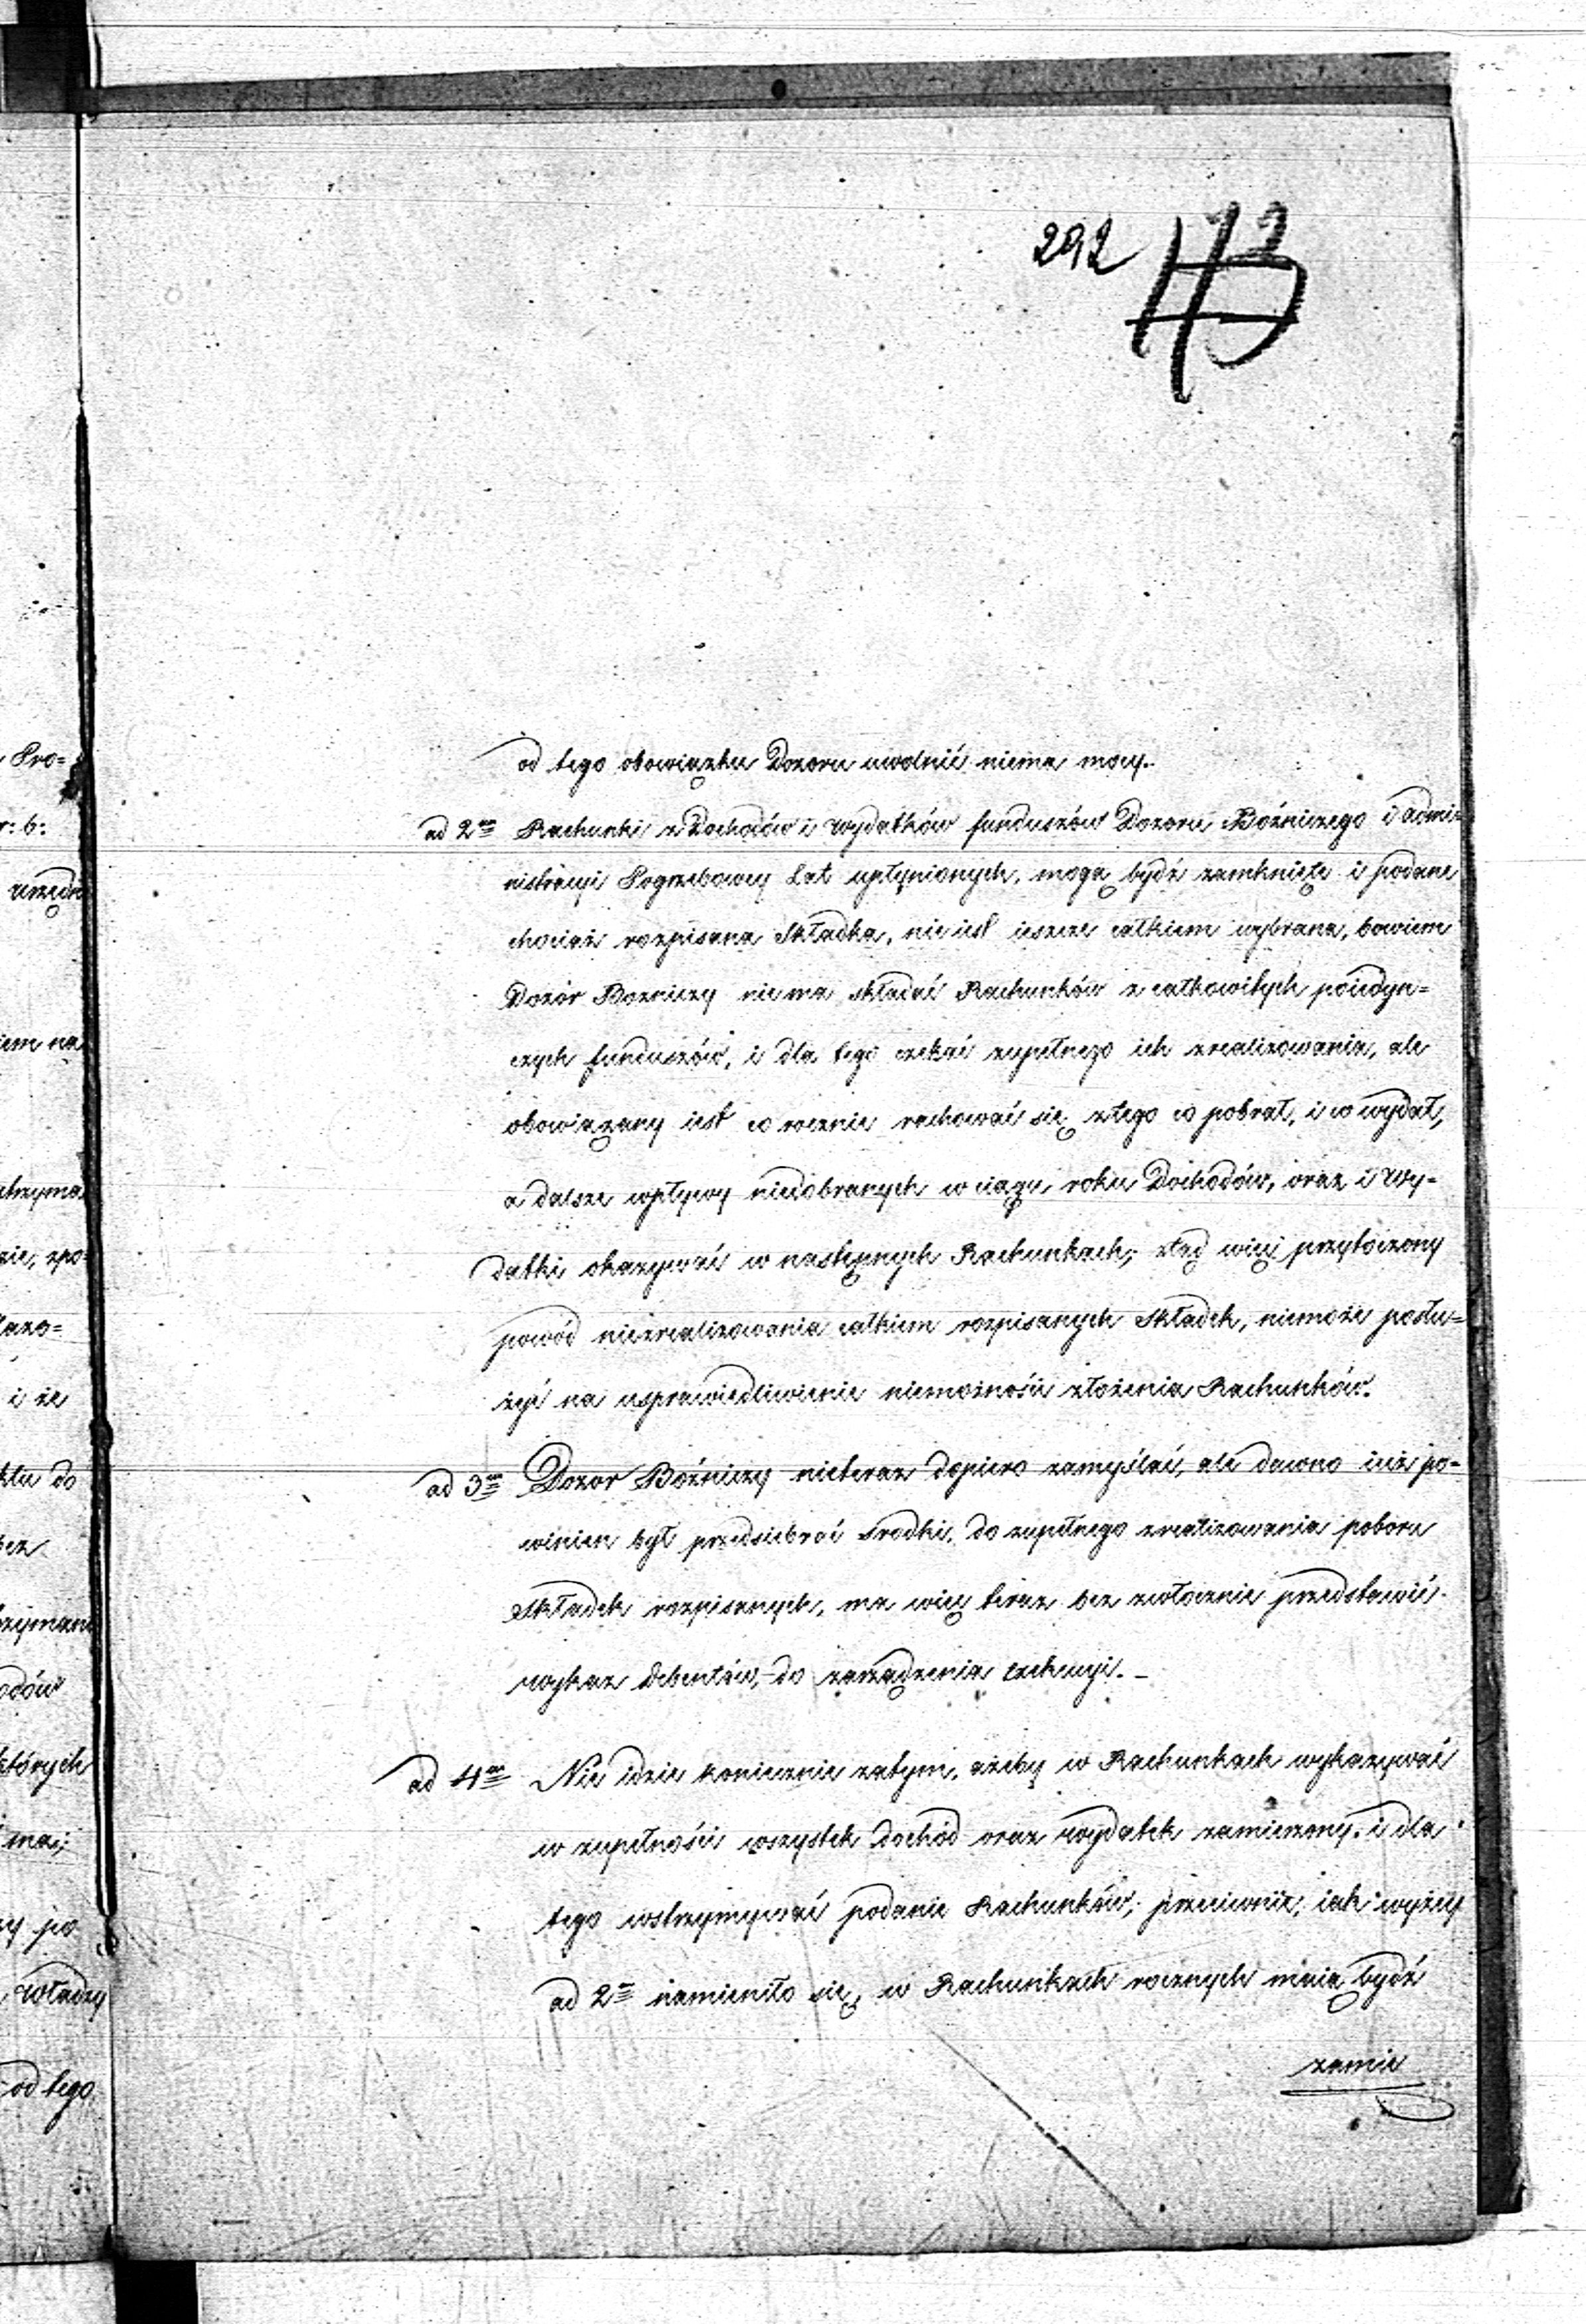 292
113
od tego obowiązku Dozoru uwolnić niema mocy.
ad 2um Rachunki z Dochodów i wydatków funduszów Dozoru Bóźniczego i admi=
nistracyi Pogrzebowey Lat upłynionych, mogą bydź zamknięte i podane
chociaż rozpisana Składka, nie iest ieszcze całkiem wybrana, bowiem
Dozór Bozniczy nie ma składać Rachunków z całkowitych poiedyn=
czych funduszów, i dla tego czekać zupełnego ich zrealizowania, ale
obowiązany iest co rocznie rachować się z tego co pobrał, i co wydał,
a dalsze wpływy niedobranych w ciągu roku Dochodów, oraz i Wy=
datki okazywać w następnych Rachunkach; ztąd więc przytoczony
powód niezrealizowania całkiem rozpisanych Składek, niemoże posłu=
żyć na usprawiedliwienie niemożności złożenia Rachunków.
ad 3um Dozor Bóźniczy nieteraz dopiero zamyślać, ale dawno iuż po=
winien był przedsiebrać srodki, do zupełnego zrealizowania poboru
Składek rozpisanych, ma więc teraz bez zwłocznie przedstawić
wykaz Debentów, do zarządzenia exekucyi. –
ad 4um Nie idzie koniecznie zatym, ażeby w Rachunkach wykazywać
w zupełności wszystek dochód oraz wydatek zamierzony, i dla
tego wstrzymywać podanie Rachunków; przeciwnie, iak wyżey
ad 2um namieniło się, w Rachunkach rocznych maią bydź
zamie
Pro=
r: 6:
urzędn
iem na
trzyma
zie, zpo=
i że
ktu do
bez
rzymane
odów
których
ma;
ey po
władzy
od tego